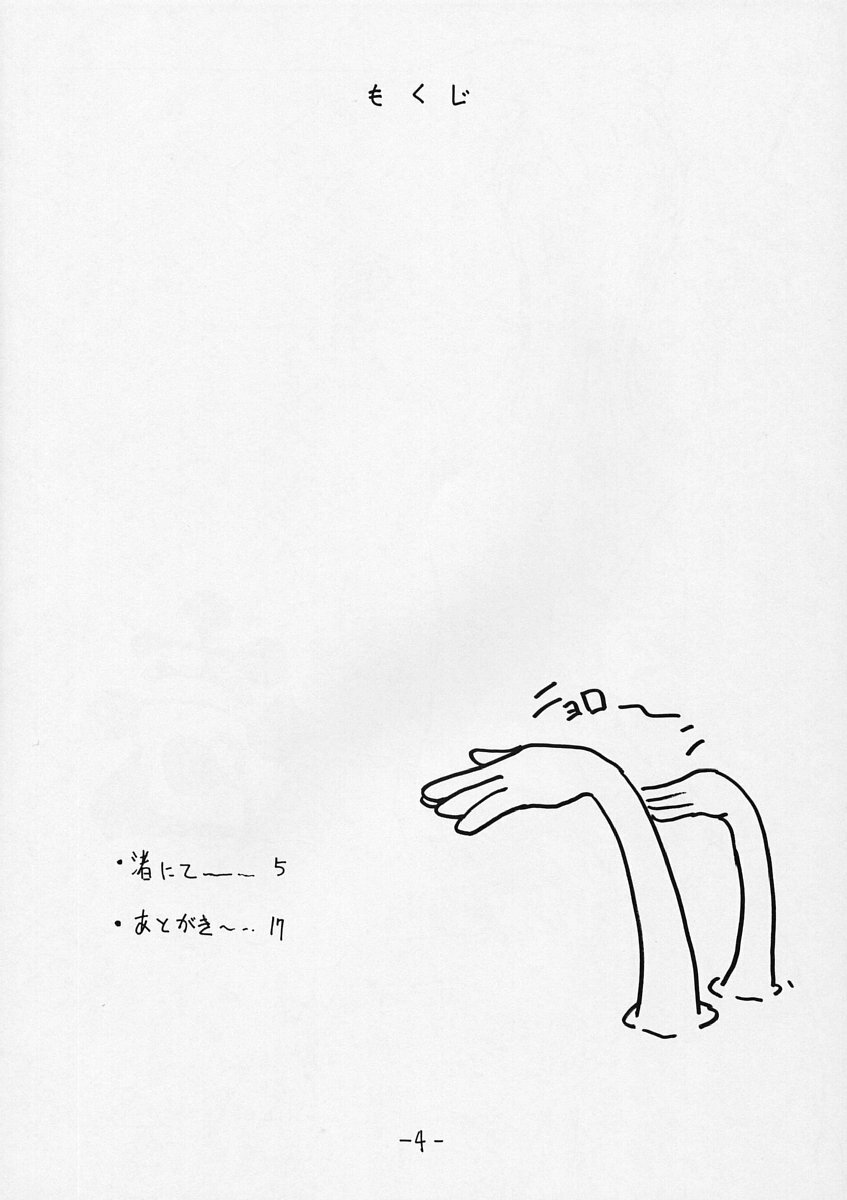 もくじ
ニョロ〜
・渚にて—— 5
・あとがき〜‥ 17
-4-